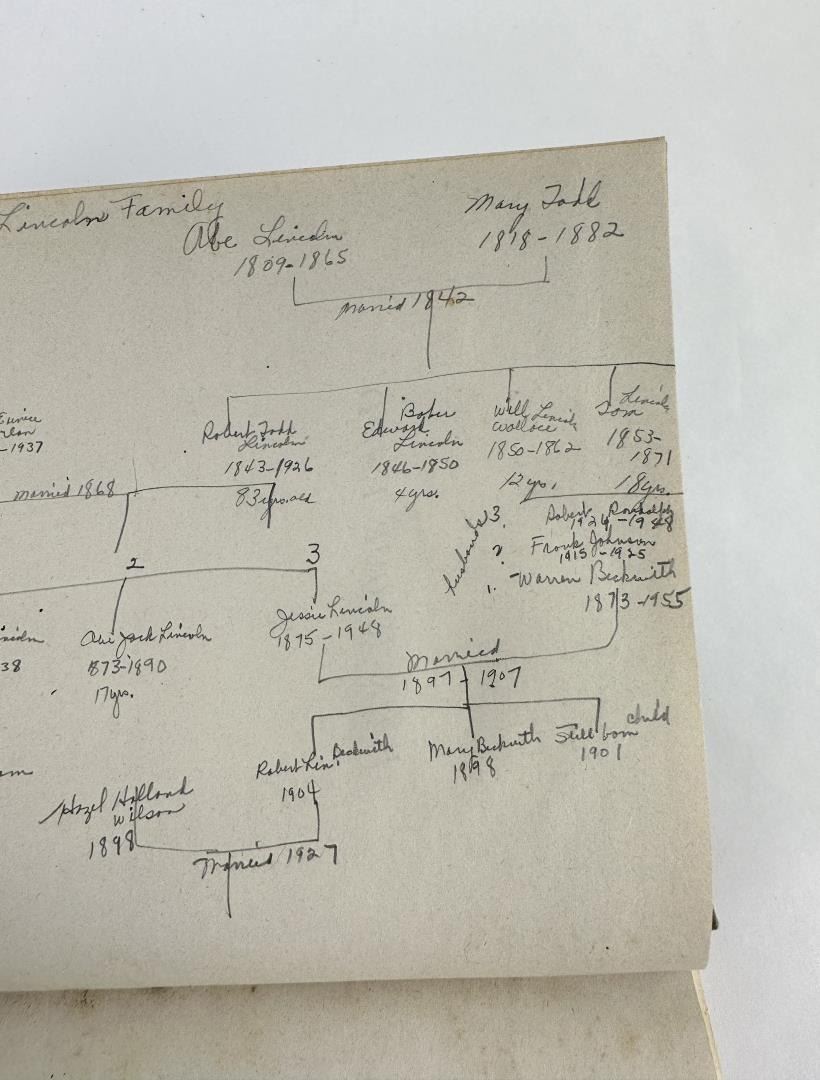 Lincoln Family
Abe Lincoln
1809-1865
Mary Todd
1818-1882
Married 1842
Eunice
-1937
Robert Todd
Lincoln
1843-1926
83 yrs. old
Baker
Edward
Lincoln
1846-1850
4 yrs.
Will Lincoln
Wallace
1850-1862
12 yrs.
Lincoln
Tom
1853-
1871
18 yrs.
married 1868
husbands
3. Robert Randolph
1926-1948
2 Frank Johnson
1915-1925
1. Warren Beckwith
1873-1955
2
3
38
Abe Jack Lincoln
1873-1890
17 yrs.
Jessie Lincoln
1875-1948
Married
1897-1907
Robert Lin. Beckwith
1904
Mary Beckwith
1898
Still born child
1901
Hazel Holland
Wilson
1898
Married 1927